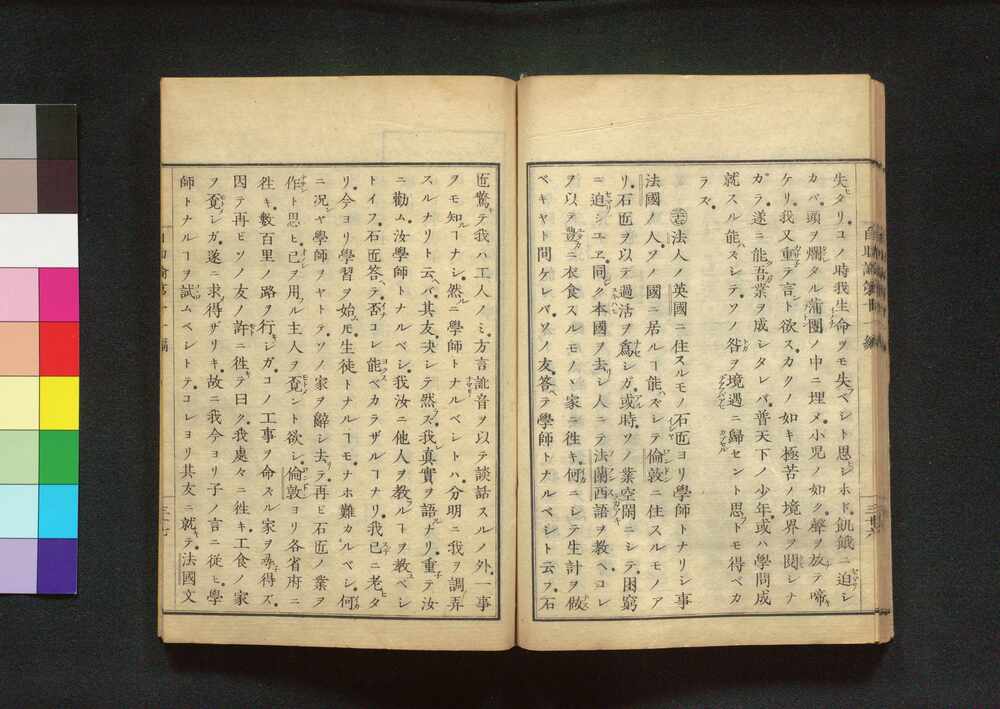 失タリコノ時我生命ヲモ失ベシト思シホド飢餓ニ迫シ
カバ頭ヲ爛タル蒲團ノ中ニ埋メ小兒ノ如ク聲ヲ放テ啼
ケリ我又重テ言ント欲スカクノ如キ極苦ノ境界ヲ閲シナ
ガラ遂ニ能吾業ヲ成シタレバ普天下ノ少年或ハ學問成
就スル能ハズシテソノ咎ヲ境遇ニ歸セント思トモ得ベカ
ラズ
法人ノ英國ニ住スルモノ石匠ヨリ學師トナリシ事
法國ノ人ソノ國ニ居ルヿ能ハズシテ倫敦ニ住スルモノア
リ石匠ヲ以テ過活ヲ爲シガ或時ソノ業空閑ニシテ困窮
ニ迫シユヱ同ク本國ヲ去シ人ニテ法蘭西語ヲ教ヘコレ
ヲ以テ豐ニ衣食スルモノヽ家ニ徃キ何ニシテ生計ヲ做
ベキヤト問ケレバソノ友答テ學師トナルベシト云フ石
匠驚テ我ハ工人ノミ方言訛音ヲ以テ談話スルノ外一事
ヲモ知ルヿナシ然ルニ學師トナルベシトハ分明ニ我ヲ調弄
スルナリト云バ其友決シテ然ズ我真實ヲ語ルナリ重テ汝
ニ勸ム汝學師トナルベシ我汝ニ他人ヲ教ルヿヲ教ユベシ
トイフ石匠答テ否コレ能ベカラザルヿナリ我已ニ老タ
リ今ヨリ學習ヲ始ムルモ生徒トナルヿモナホ難カルベシ何
ニ况ヤ學師ヲヤトテソノ家ヲ辭シ去テ再ビ石匠ノ業ヲ
作ント思ヒ已ヲ用フル主人ヲ覓ント欲シ倫敦ヨリ各省府ニ
徃キ數百里ノ路ヲ行シガコノ工事ヲ命スル家ヲ尋子得ズ
因テ再ビソノ友ノ許ニ徃テ曰ク我處々ニ徃キ工食ノ家
ヲ覓シガ遂ニ求得ザリキ故ニ我今ヨリ子ノ言ニ從ヒ學
師トナルヿヲ試ムベシトテコレヨリ其友ニ就テ法國文